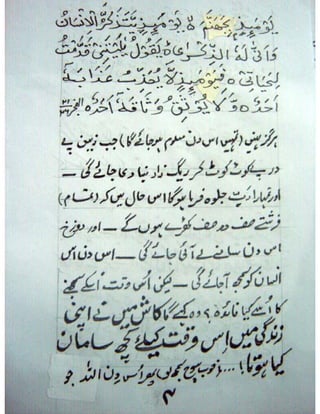 يَوْمَئِذٍۭ بِجَهَنَّمَ ۵ يَوْمَئِذٍ يَّتَذَكَّرُ الْاِنْسَانُ
وَاَنّٰى لَهُ الذِّكْرٰى ۵ يَقُوْلُ يٰلَيْتَنِيْ قَدَّمْتُ
لِحَيَاتِيْ ۵ فَيَوْمَئِذٍ لَّا يُعَذِّبُ عَذَابَهٗٓ
اَحَدٌ ۵ وَّلَا يُوْثِقُ وَثَاقَهٗٓ اَحَدٌ ۵ الفجر
ہرگز نہیں (تمہیں اس دن معلوم ہو جائے گا) جب زمین پے
در پے کوٹ کوٹ کر ریگ زار بنا دی جائے گی —
اور تمہارا رب جلوہ فرما ہوگا اس حال میں کہ (تمام)
فرشتے صف در صف کھڑے ہوں گے — اور دوزخ
اس دن سامنے لے آئی جائے گی — اس دن اس
انسان کو سمجھ آ جائے گی — لیکن اُس وقت اسکے سمجھنے
کا اُسے کیا فائدہ ؟ وہ کہے گا کاش میں نے اپنی
زندگی میں اِس وقت کیلئے کچھ سامان
کیا ہوتا! ... خوب سمجھ لو اُس دن اللہ جو
۴